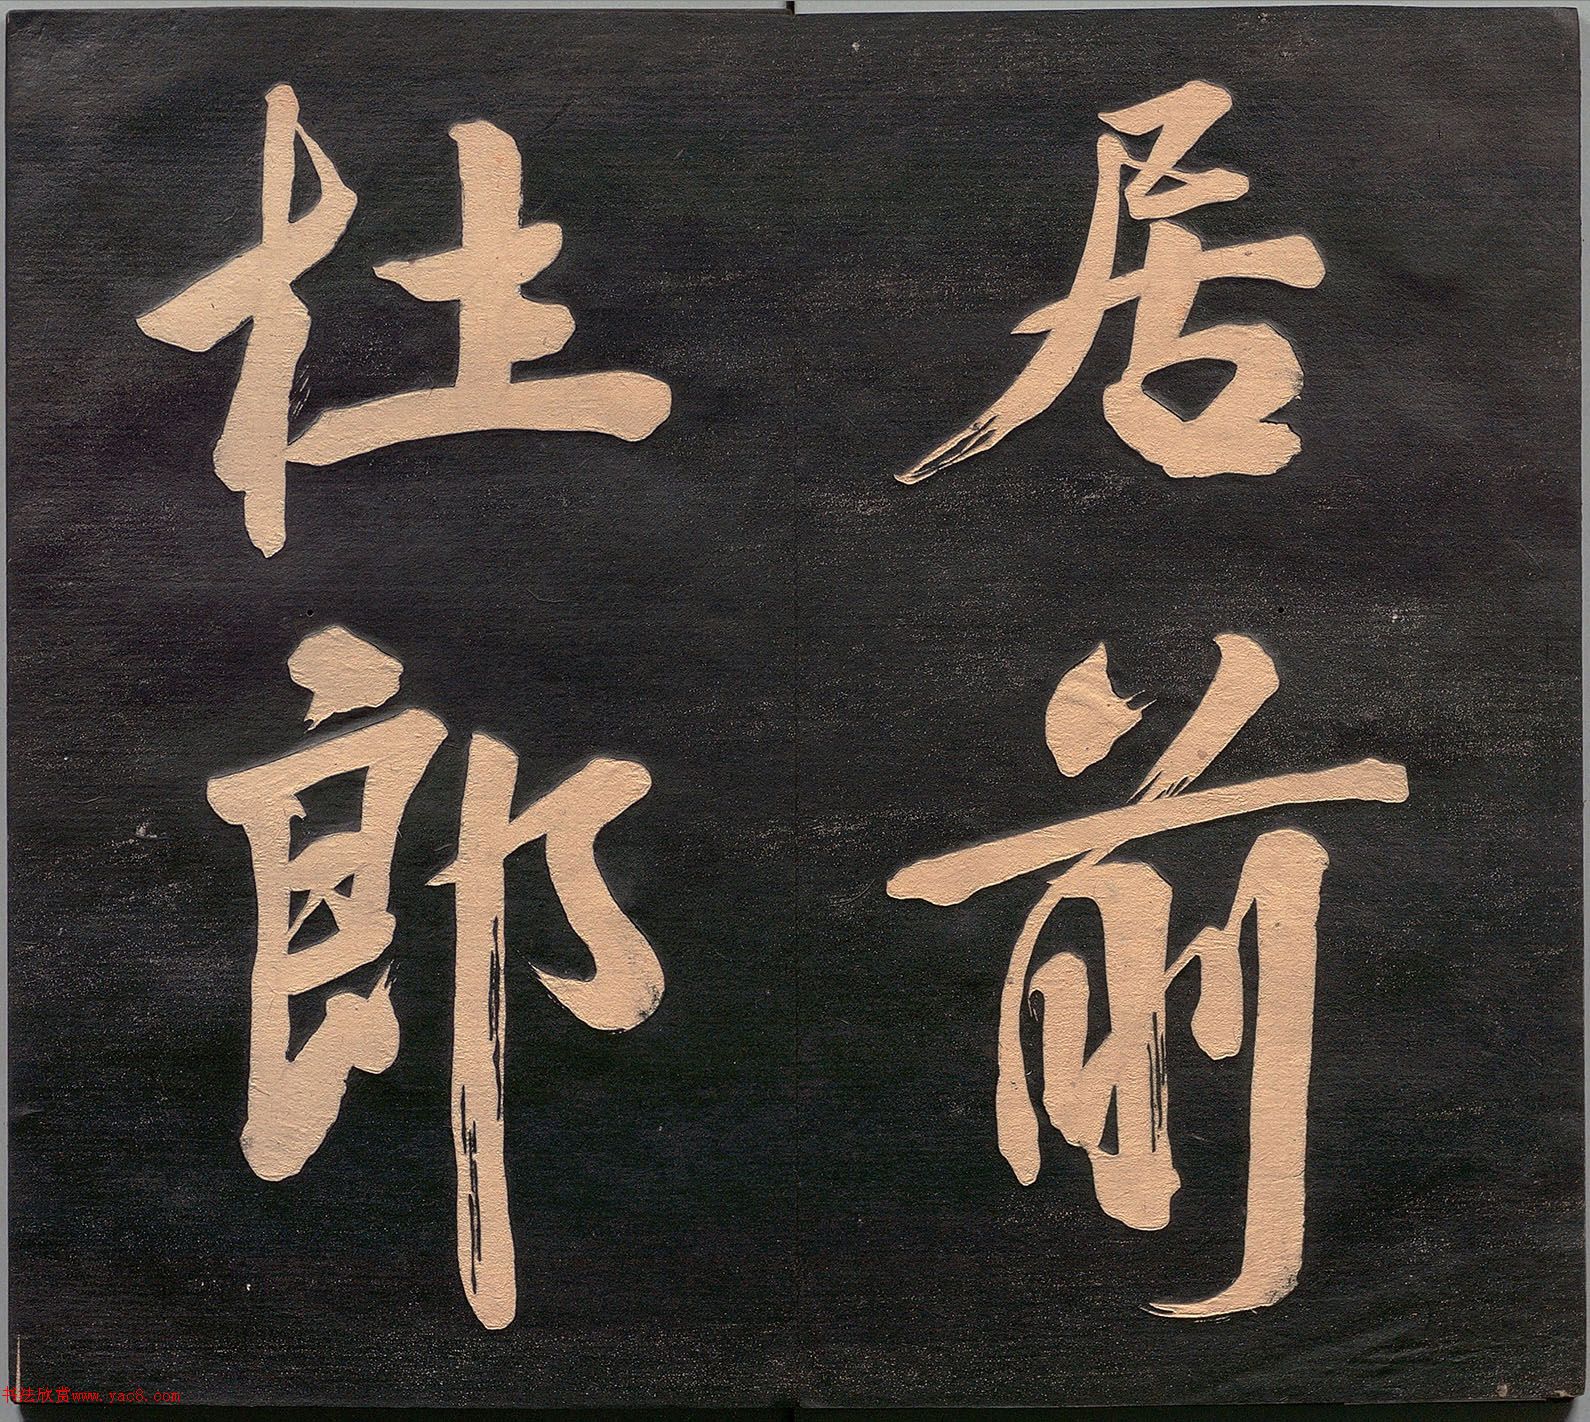 居前
杜郎
书法欣赏www.yac8.com